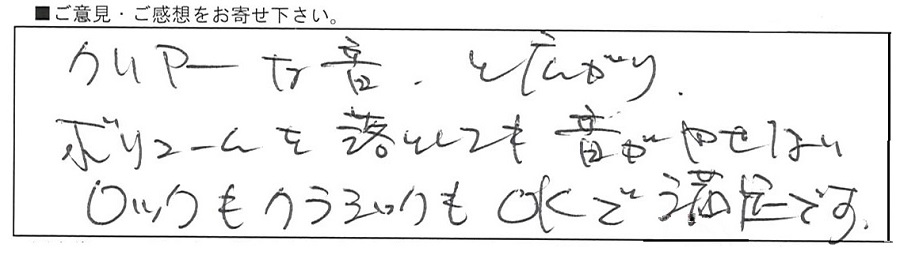 ■ご意見・ご感想をお寄せ下さい。
クリアーな音、と広がり、
ボリュームを落としても音がやせない
ロックもクラシックもOKで満足です。